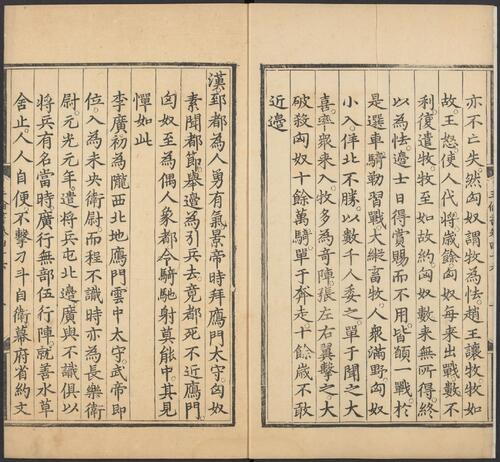 亦不亡失然匈奴謂牧為怯趙王讓牧牧如
故王怒使人代將歲餘匈奴每来出戰數不
利復遣牧牧至如故約匈奴數来無所得終
以為怯邊士日得賞賜而不用皆願一戰於
是選車騎勤習戰大縱畜牧人衆滿野匈奴
小入佯北不勝以數千人委之單于聞之大
喜率衆来入牧多為奇陣張左右翼擊之大
破殺匈奴十餘萬騎單于奔走十餘歲不敢
近邊
漢郅都為人勇有氣景帝時拜鴈門太守匈奴
素聞都節舉邊為引兵去竟都死不近鴈門
匈奴至為偶人象都令騎馳射莫能中其見
憚如此
李廣初為隴西北地鴈門雲中太守武帝即
位入為未央衛尉而程不識時亦為長樂衛
尉元光元年遣將兵屯北邊廣與不識俱以
將兵有名當時廣行無部伍行陣就善水草
舍止人人自便不擊刁斗自衛幕府省約文